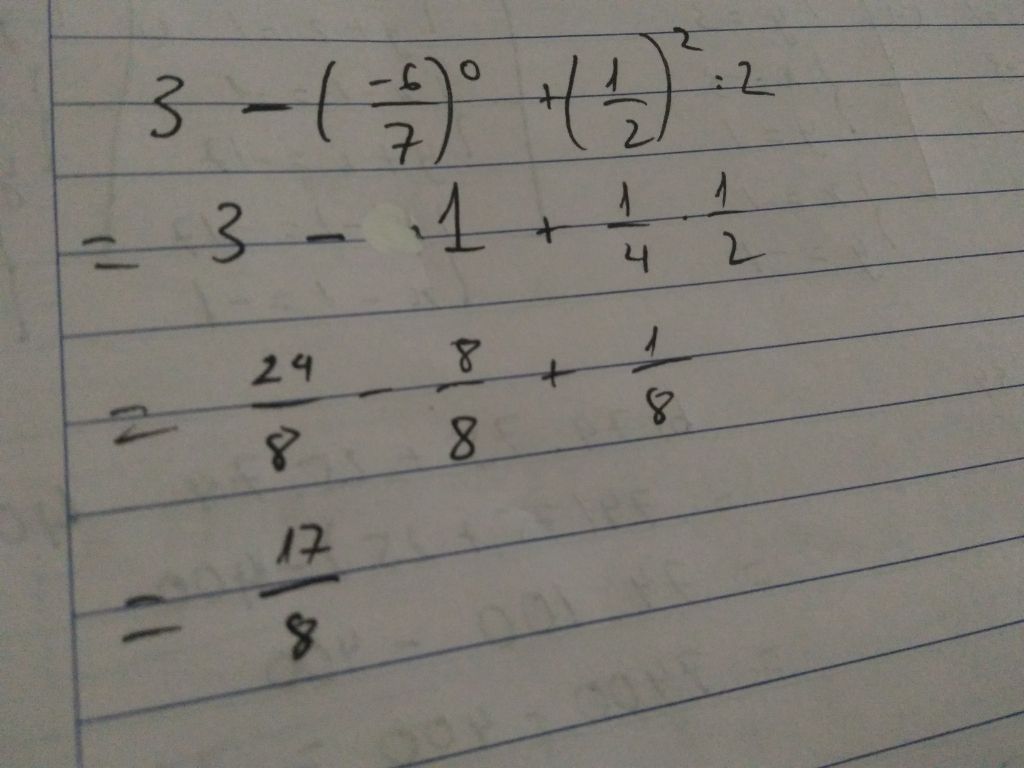 3 - (-6/7)^0 + (1/2)^2 : 2
= 3 - 1 + 1/4 · 1/2
= 24/8 - 8/8 + 1/8
= 17/8